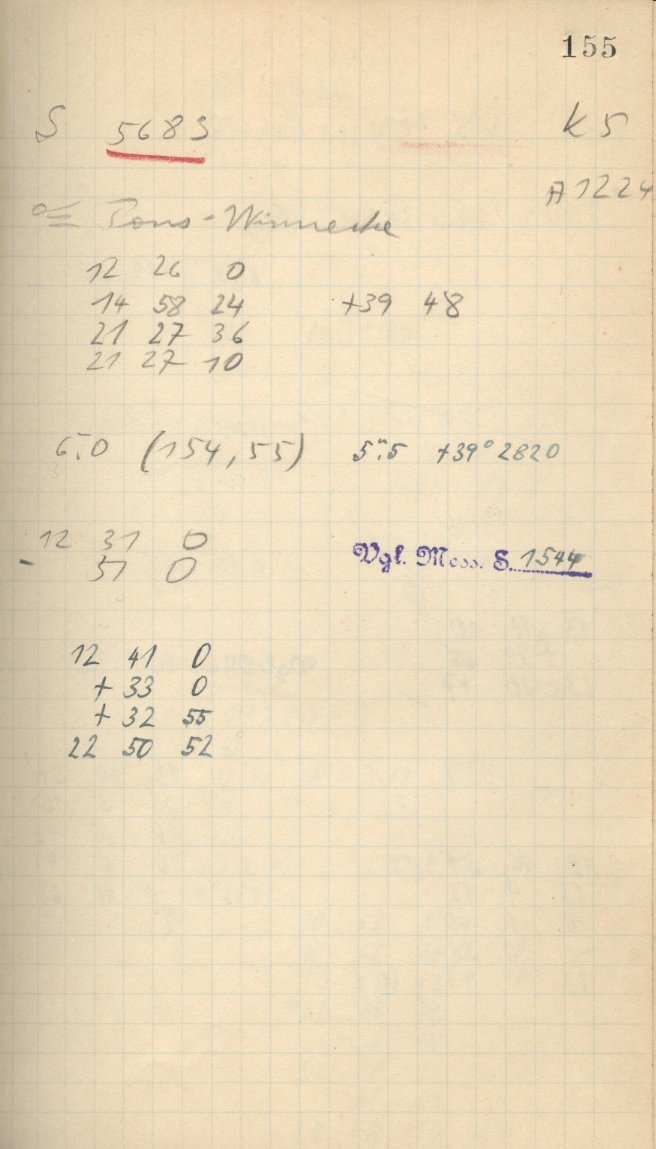 155
S 5683 K5
A1224
Pons-Winnecke
12 26 0
14 58 24 +39 48
21 27 36
21 27 10
6.0 (154,55) 5m.5 +39° 2820
12 31 0
- 51 0
Vgl. Mess. S. 1544
12 41 0
+ 33 0
+ 32 55
22 50 52